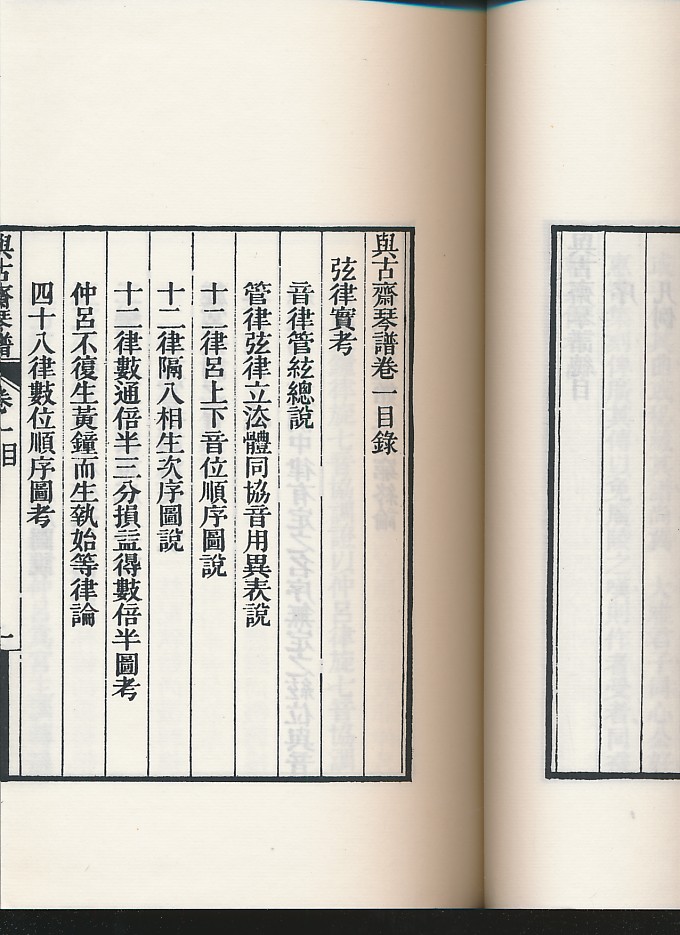 與古齋琴譜卷一目錄
弦律實考
音律管絃總說
管律弦律立法體同協音用異表說
十二律呂上下音位順序圖說
十二律隔八相生次序圖說
十二律數通倍半三分損益得數倍半圖考
仲呂不復生黃鐘而生執始等律論
四十八律數位順序圖考
與古齋琴譜 卷一目 一